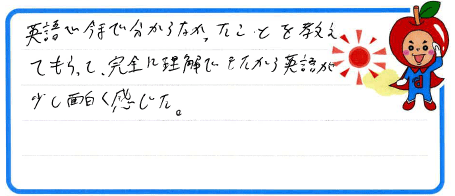 英語で今まで分からなかったことを教え
てもらって、完全に理解できたから英語が
少し面白く感じた。